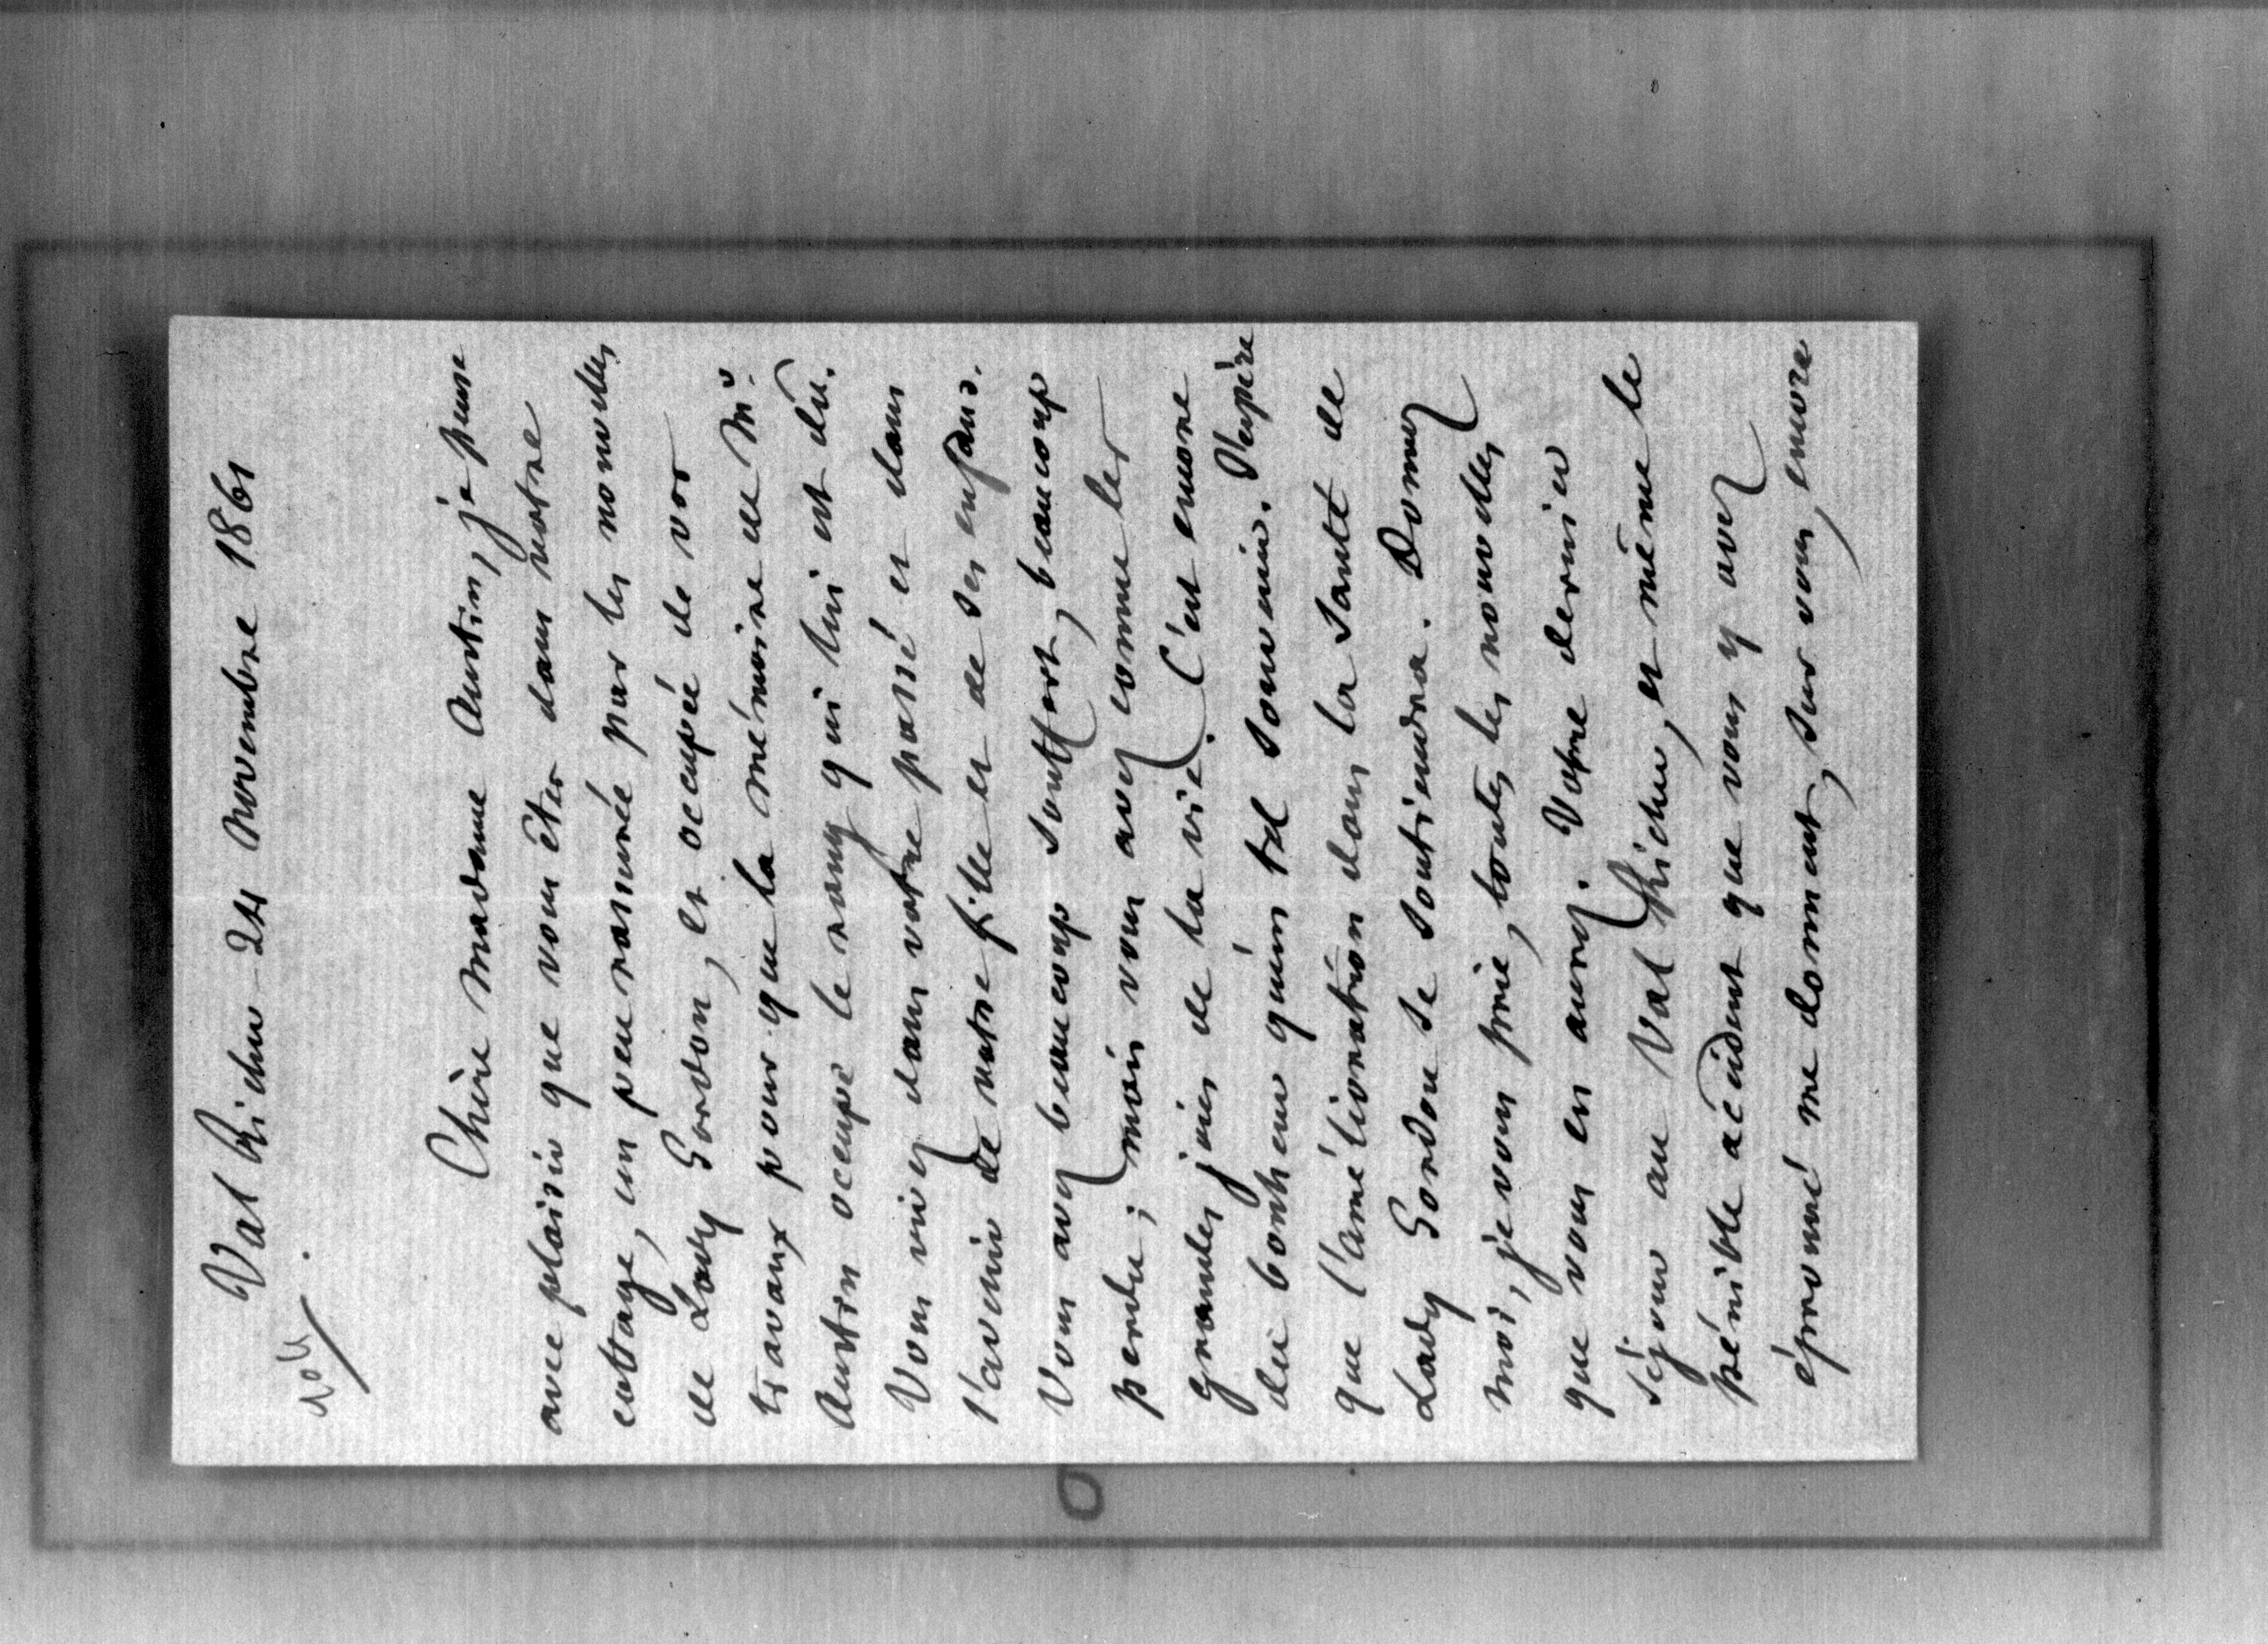 Val Richer 24 Novembre 1861
Chère Madame Austin, je pense
avec plaisir que vous êtes dans votre
cottage, un peu rassurée par les nouvelles
de Lady Gordon, et occupée de vos
travaux pour que la mémoire de Mr.
Austin occupe le rang qui lui est dû.
Vous vivez dans votre passé et dans
l'avenir de votre fille et de ses enfans.
Vous avez beaucoup souffert, beaucoup
perdu ; mais vous avez connu les
grandes joies de la vie. C'est encore
du bonheur qu'un tel souvenir. J'espère
que l'amélioration dans la santé de
Lady Gordon se soutiendra. Donnez
moi, je vous prie, toutes les nouvelles
que vous en aurez. Votre dernier
séjour au Val Richer, et même le
pénible accident que vous y avez
éprouvé me donnent, sur vous, encore